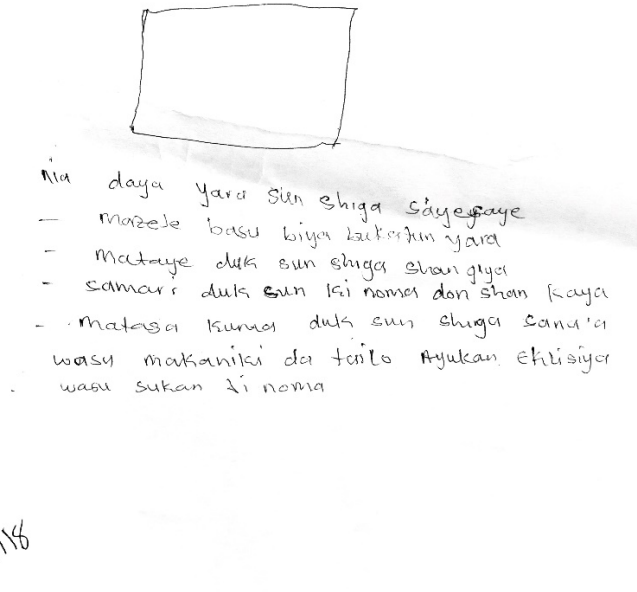 Nia daya yara sun shiga sayesaye
- mazeje basu biya bukatun yara
- mataye duk sun shiga shan giya
- samari duk sun ki noma don shan kaya
- matasa kuma duk sun shiga sana'a
wasu makaniki da tailo Ayukan Ekklisiya
. wasu sukan ki noma
118